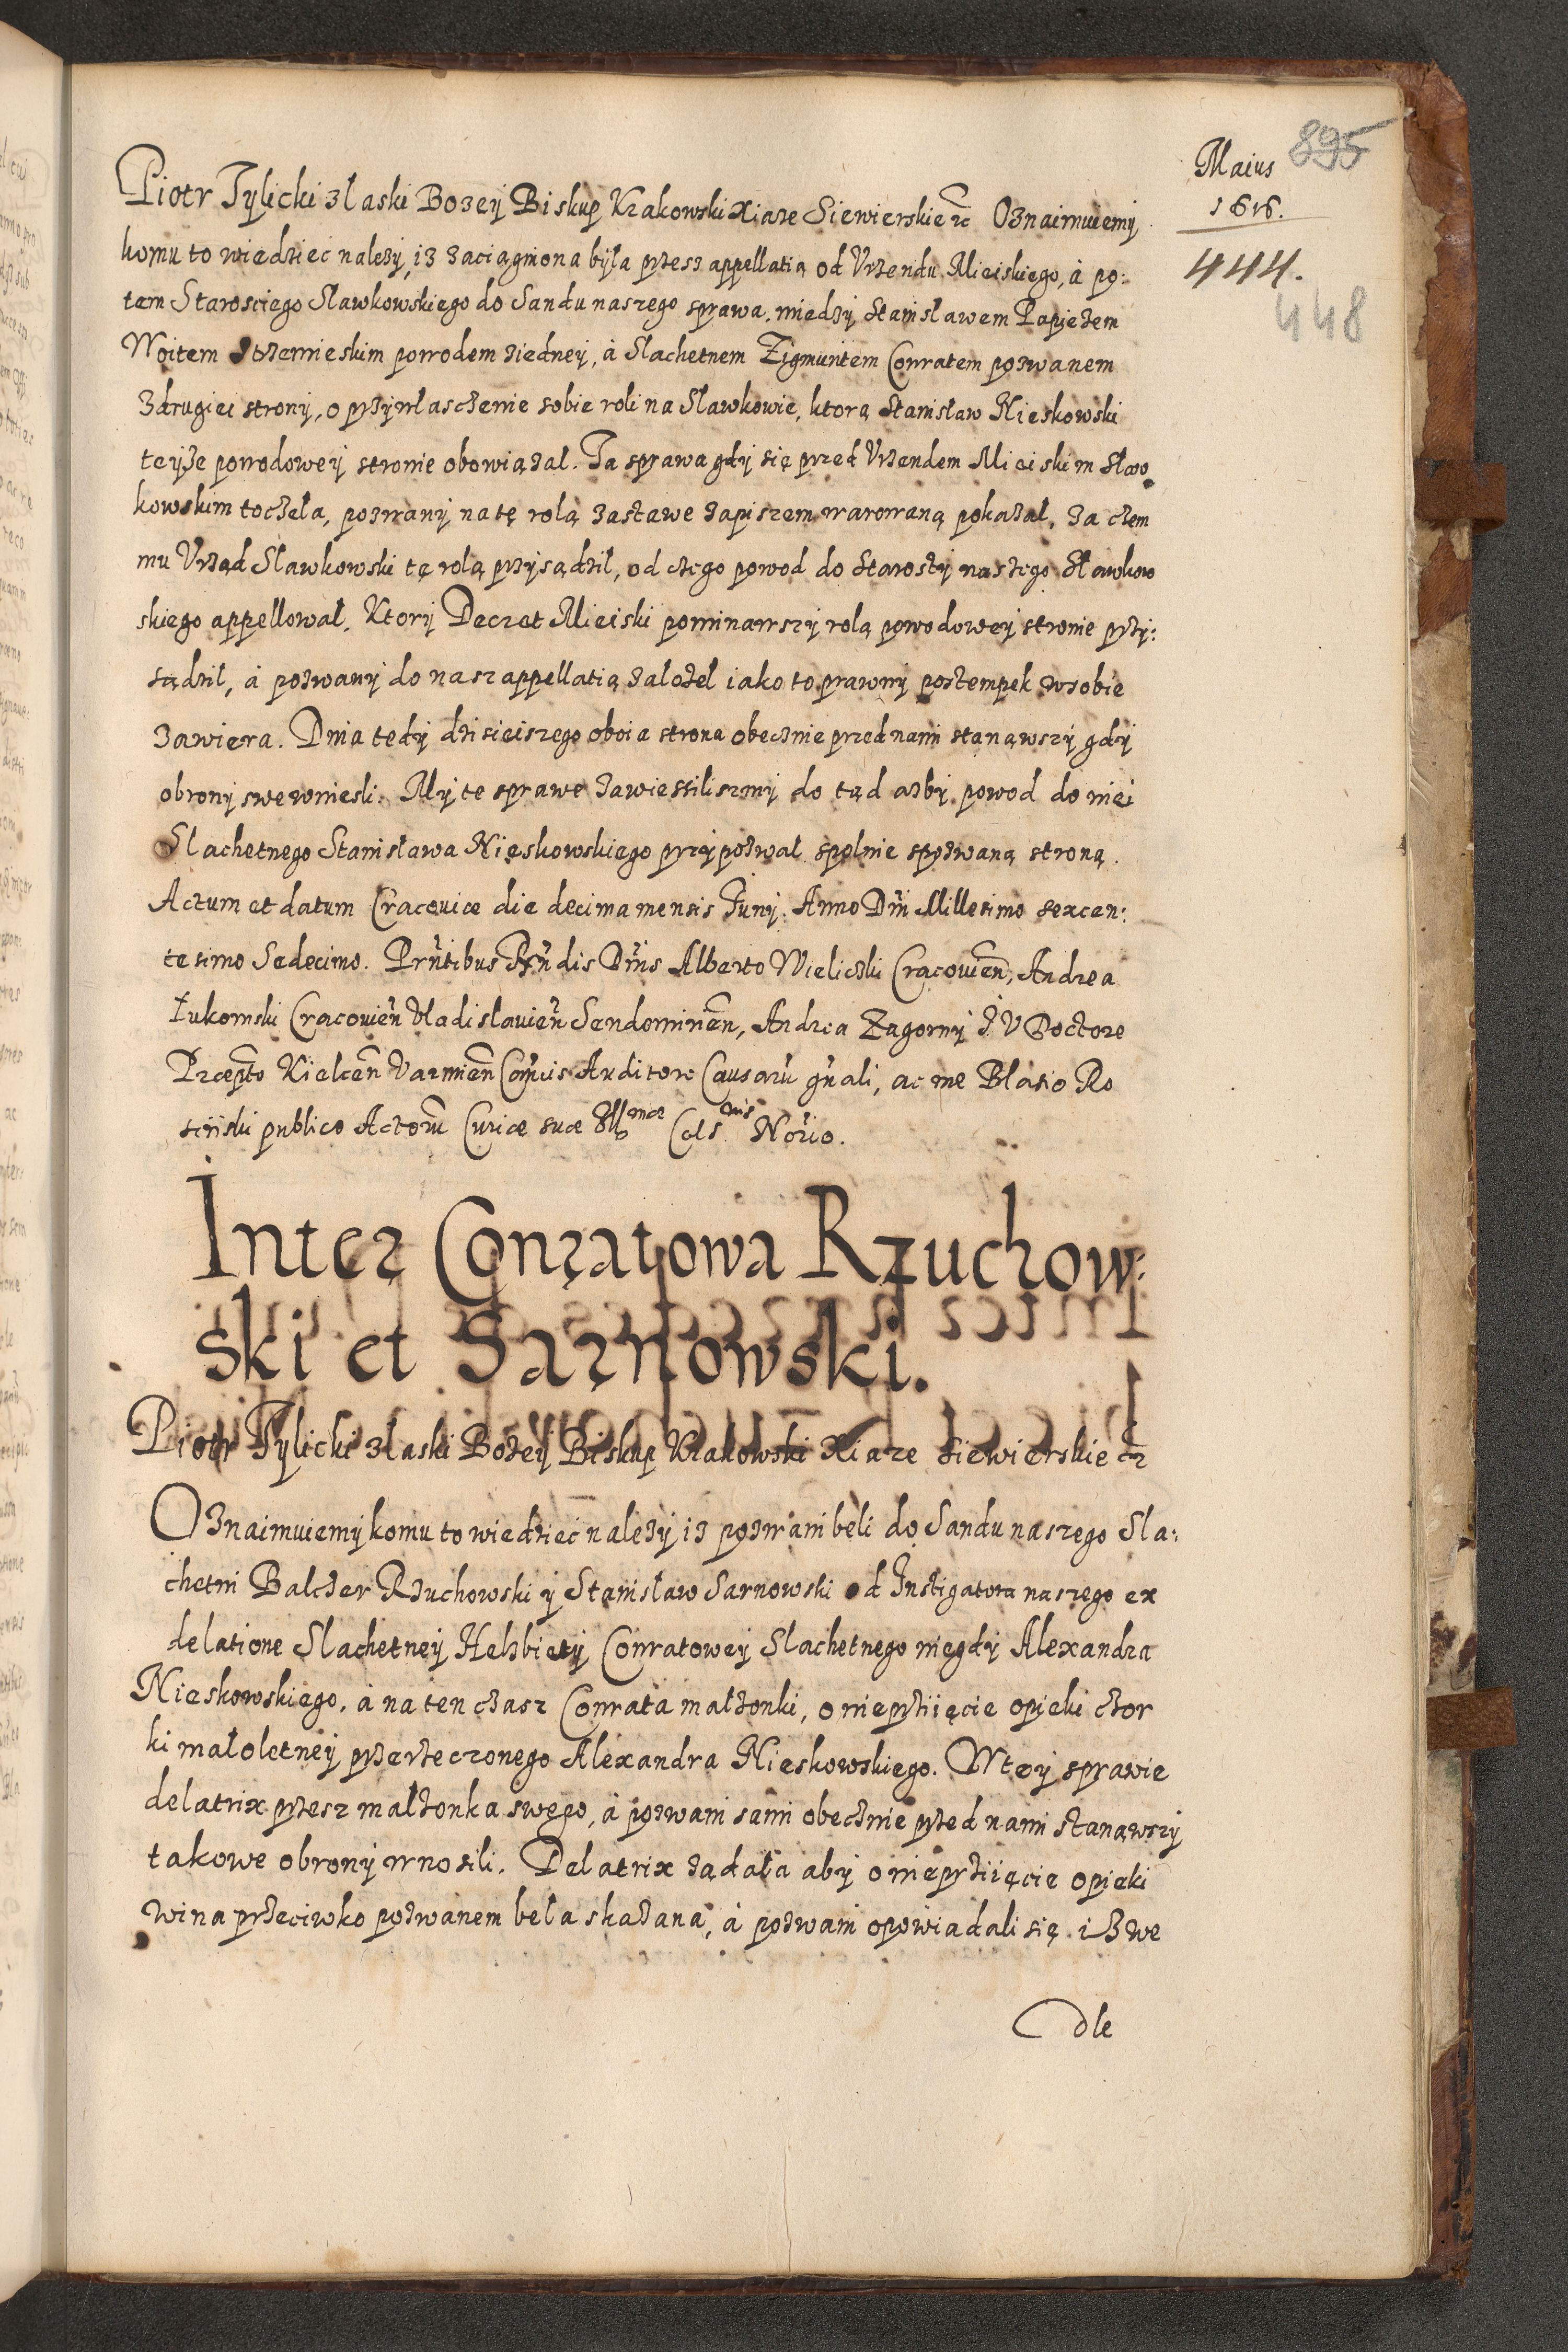 Maius 895
1616.
444.
448
Piotr Tylicki z laski Bozey Biskup Krakowski Xiaze Siewierskie etc Oznaimuiemy
komu to wiedziec nalezy, iz zaciągniona byla przesz appellatią od Vrzendu Mieiskiego, à po:
tem Starosciego Slawkowskiego do Sandu naszego sprawa, miedzy Stanisławem Papiezem
Woitem Strzemieskim powodem ziedney, à Slachetnem Zigmuntem Conratem pozwanem
z drugiei strony, o przywlasczenie sobie roli na Sławkowie, ktorą Stanisław Nieskowski
teyże powodowey stronie obowiązal. Ta sprawa gdy się przed Vrzendem Mieiskim Sław
kowskim toczeła, pozwany na tę rolą zastawe zapiszem warowaną pokazał, za czem
mu Vrząd Slawkowski tę rolą przysądził, od czego powod do Starosty naszego Sławkow
skiego appellował, Ktory Decret Mieiski pominawszy rolą powodowey stronie przy:
sądził, à pozwany do nasz appellatią założel iako to prawny postempek w sobie
zawiera. Dnia tedy dzisieiszego oboia strona obecznie przed nami stanąwszy gdy
obrony swe wniesli. My te sprawe zawiesiliszmy do tąd azby powod do niei
Slachetnego Stanisława Nięskowskiego przypozwał spolnie spozwaną stroną.
Actum et datum Cracouiæ die decima mensis Juny. Anno Dni Millesimo sexcen:
tesimo Sedecimo. Prñtibus Rñdis Dñis Alberto Wieliczki Cracouien, Andrea
Łukomski Cracouien Vladislauien Sendomirien, Andrea Zagorny J. V Doctore
Præpto Kielcen Varmien Canicis Auditore Causaru gñali, ac me Blasio Ro
sinski publico Actoru Curiæ suæ Illmæ Cels nis Norio.
Inter Conratowa Rzuchow:
ski et Sarnowski.
Piotr Tylicki z laski Bozey Biskup Krakowski Xiaze Siewierskie etc
Oznaimuiemy komu to wiedzieć nalezy iz pozwani beli do Sandu naszego Sla:
chetni Balczer Rzuchowski y Stanislaw Sarnowski od Instigatora naszego ex
delatione Slachetney Helzbiety Conratowey Slachetnego niegdy Alexandra
Nieskowskiego, à na ten czasz Conrata malzonki, o nieprziięcie opieki czor
ki małoletney przerzeczonego Alexandra Nieskowskiego. W tey sprawie
delatrix przesz malżonka swego, à pozwani sami obecznie przed nami stanąwszy
takowe obrony wnosili. Delatrix ządała aby o nieprziięcie opieki
wina przeciwko pozwanem beła skazana, à pozwani opowiadali się iz we
dle